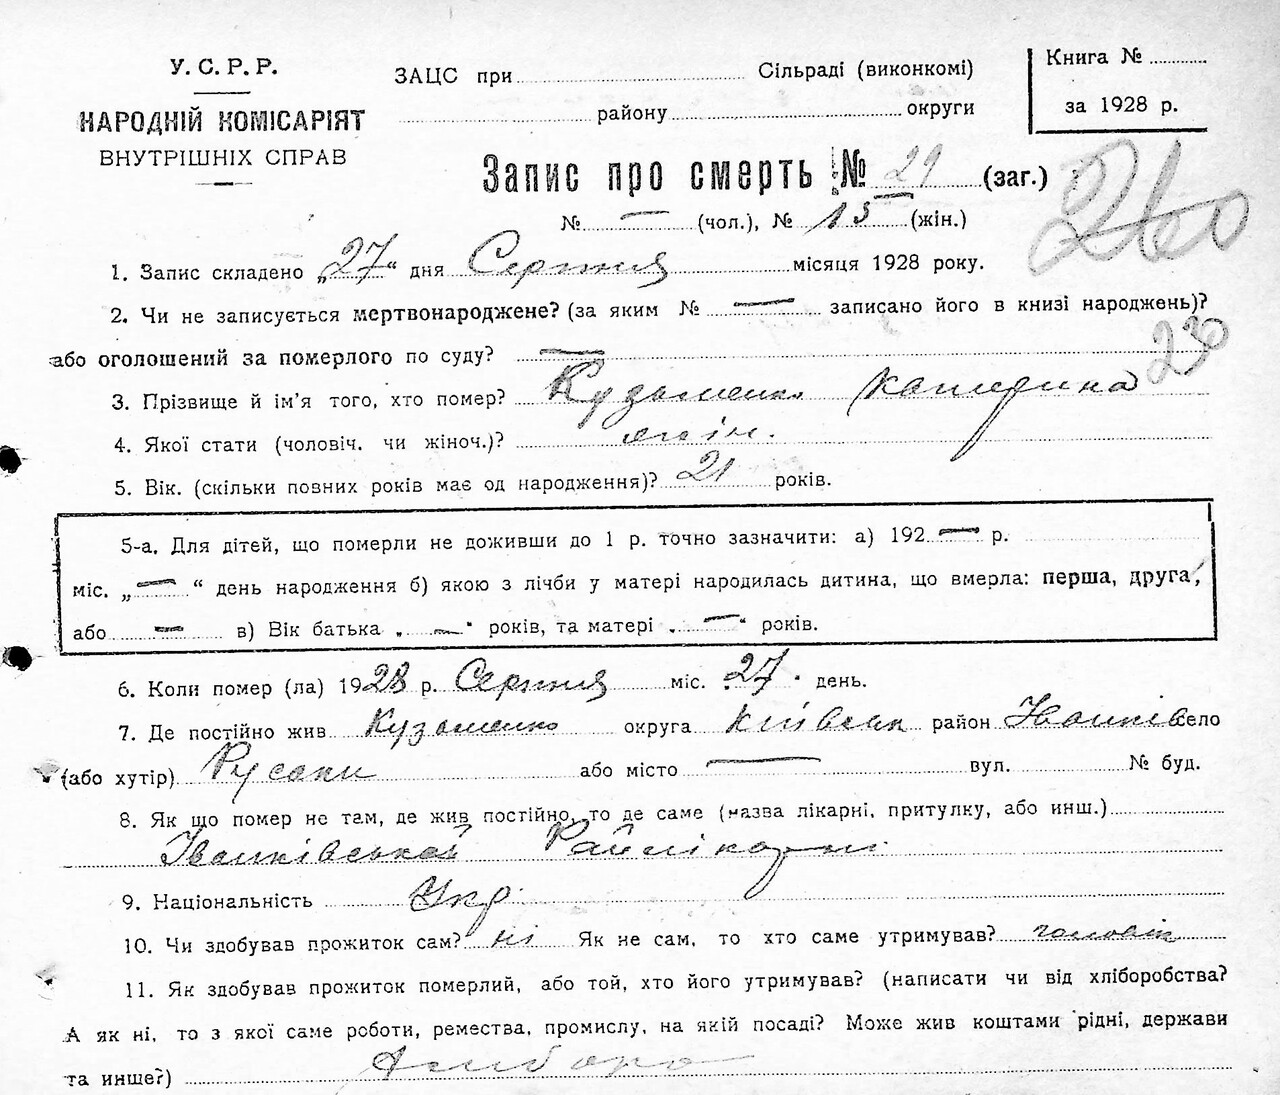 У. С. Р. Р.
НАРОДНІЙ КОМІСАРІЯТ
ВНУТРІШНІХ СПРАВ
ЗАЦС при Сільраді (виконкомі)
району округи
Книга №
за 1928 р.
Запис про смерть № 29 (заг.)
260
№ — (чол.), № 15 (жін.)
1. Запис складено „27“ дня Серпня місяця 1928 року.
2. Чи не записується мертвонароджене? (за яким № — записано його в книзі народжень)?
або оголошений за померлого по суду? —
23
3. Прізвище й ім'я того, хто помер? Кузьменко Катерина
4. Якої стати (чоловіч. чи жіноч.)? жін.
5. Вік. (скільки повних років має од народження)? 21 років.
5-а. Для дітей, що померли не доживши до 1 р. точно зазначити: а) 192 — р.
міс. „—“ день народження б) якою з лічби у матері народилась дитина, що вмерла: перша, друга,
або — в) Вік батька „—“ років, та матері „—“ років.
6. Коли помер (ла) 1928 р. Серпня міс. 27 день.
7. Де постійно жив Кузьменко округа Київськ район Іванків село
(або хутір) Русаки або місто — вул. № буд.
8. Як що помер не там, де жив постійно, то де саме (назва лікарні, притулку, або инш.)
Іванківської Райлікарні
9. Національність Укр.
10. Чи здобував прожиток сам? ні Як не сам, то хто саме утримував? чоловік
11. Як здобував прожиток померлий, або той, хто його утримував? (написати чи від хліборобства?
А як ні, то з якої саме роботи, ремества, промислу, на якій посаді? Може жив коштами рідні, держави
та инше?)